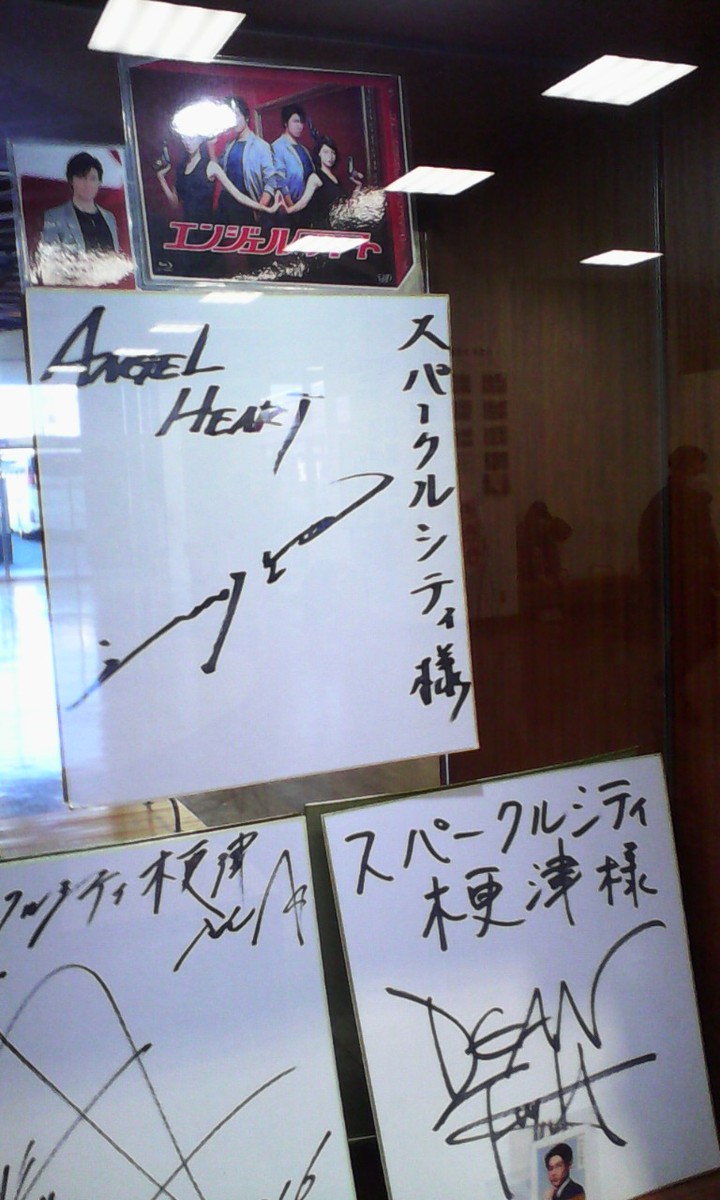 エンジェルハート
ANGEL
HEART
スパークルシティ様
クルシティ梗津
スパークルシティ
梗津様
DEAN